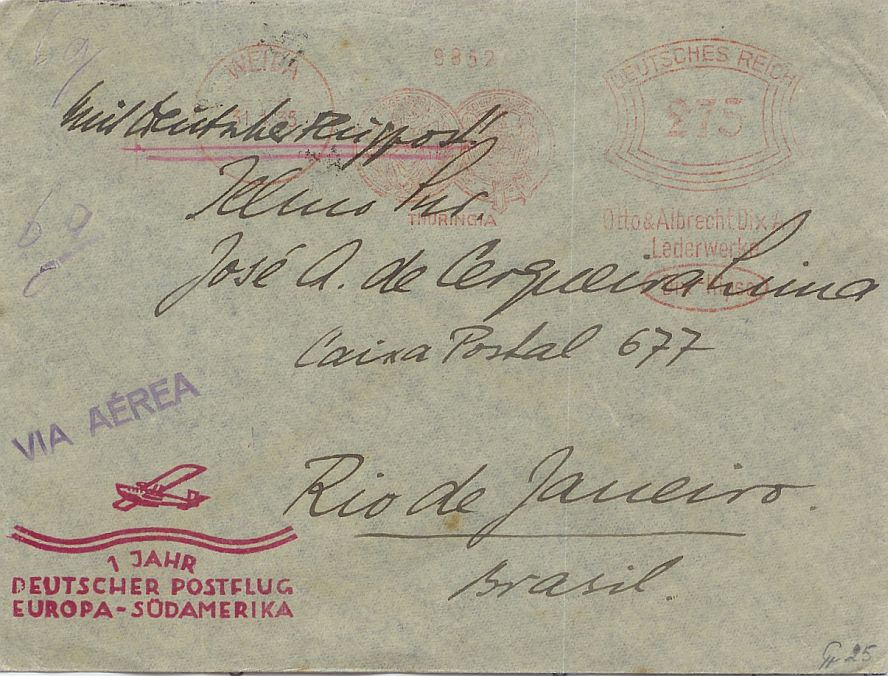 6g
WEIDA
35
9852
DEUTSCHES REICH
275
"Mit Deutscher Flugpost"
THÜRINGIA
Otto & Albrecht Dix A
Lederwerke
José A. de Cerqueira Lima
Caixa Postal 677
VIA AÉREA
Rio de Janeiro.
Brasil.
1 JAHR
DEUTSCHER POSTFLUG
EUROPA-SÜDAMERIKA
25